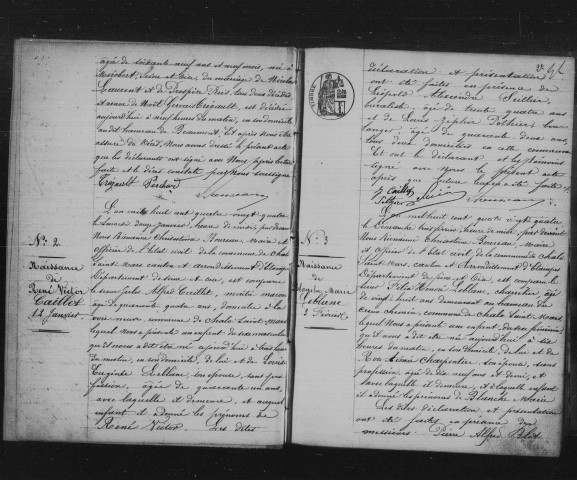 âgé de soixante neuf ans et neuf mois, née à
Méréobert, Seine et Oise, du mariage de Nicolas
Laurent et de Prospère Fris, tous deux décédés
et veuve de Noël Gervais Crécault, est décédée
aujourd'hui à neuf heures du matin, en son domicile
audit hameau de Beaumont. Et après nous être
assuré du décès, Nous avons dressé le présent acte
que les déclarants ont signé avec Nous après lecture
faite et le dêus constaté par Nous soussigné
L'an mil huit cent quatre vingt quatre
le Samedi douze janvier, heure de midi par devant
Nous Romaine Chrisostome Fourreau, maire et
officier de l'état civil de la commune de Chalo
Saint Mars canton et arrondissement d'Etampes
Département de Seine et Oise, est comparu
le sieur Jules Alfred Caillot,
âgé de quarante quatre ans, domicilié à
commune de Chalo Saint Mars
lequel Nous a présenté un enfant du sexe masculin
qu'il nous a dit être né aujourd'hui à trois heures
du matin, en son domicile, de lui et de Louise
Leblanc, son épouse, sans pro-
fession, âgée de quarante un ans,
avec laquelle il demeure, et auquel
enfant il a donné les prénoms de
René Victor. Les dites
No. 2
Naissance
de
René Victor
Caillot
12 Janvier
déclaration et présentation
ont été faites en présence de
Léopold Alexandre
âgé de trente quatre ans
et de Louis Zéphir Pothier, bou-
langer, âgé de quarante deux ans,
tous deux domiciliés en cette commune
Et ont le déclarant et les témoins
signé avec Nous le présent acte
après que lecture en a été faite
J Caillot
L'an mil huit cent quatre vingt quatre
le Dimanche trois février, heure de midi, par devant
Nous Romaine Chrisostome Fourreau, maire
et officier de l'état civil de la commune de Chalo
Saint Mars canton et arrondissement d'Etampes
Département de Seine et Oise, est comparu le
sieur Félix Leblanc, charretier, âgé
de vingt huit ans demeurant au hameau du
Creux chemin, commune de Chalo Saint Mars
lequel Nous a présenté un enfant du sexe féminin
qu'il nous a dit être né aujourd'hui à six
heures du matin, en son domicile, de lui et de
Aimée Charpentier son épouse, sans
profession, âgée de dix neuf ans et demi,
avec laquelle il demeure, et à laquelle enfant
il a donné les prénoms de Blanche Marie
Les dites déclaration et présentation
ont été faites en présence des
messieurs Pierre Alfred
No. 3
Naissance
de
Marie
Leblanc
3 Février